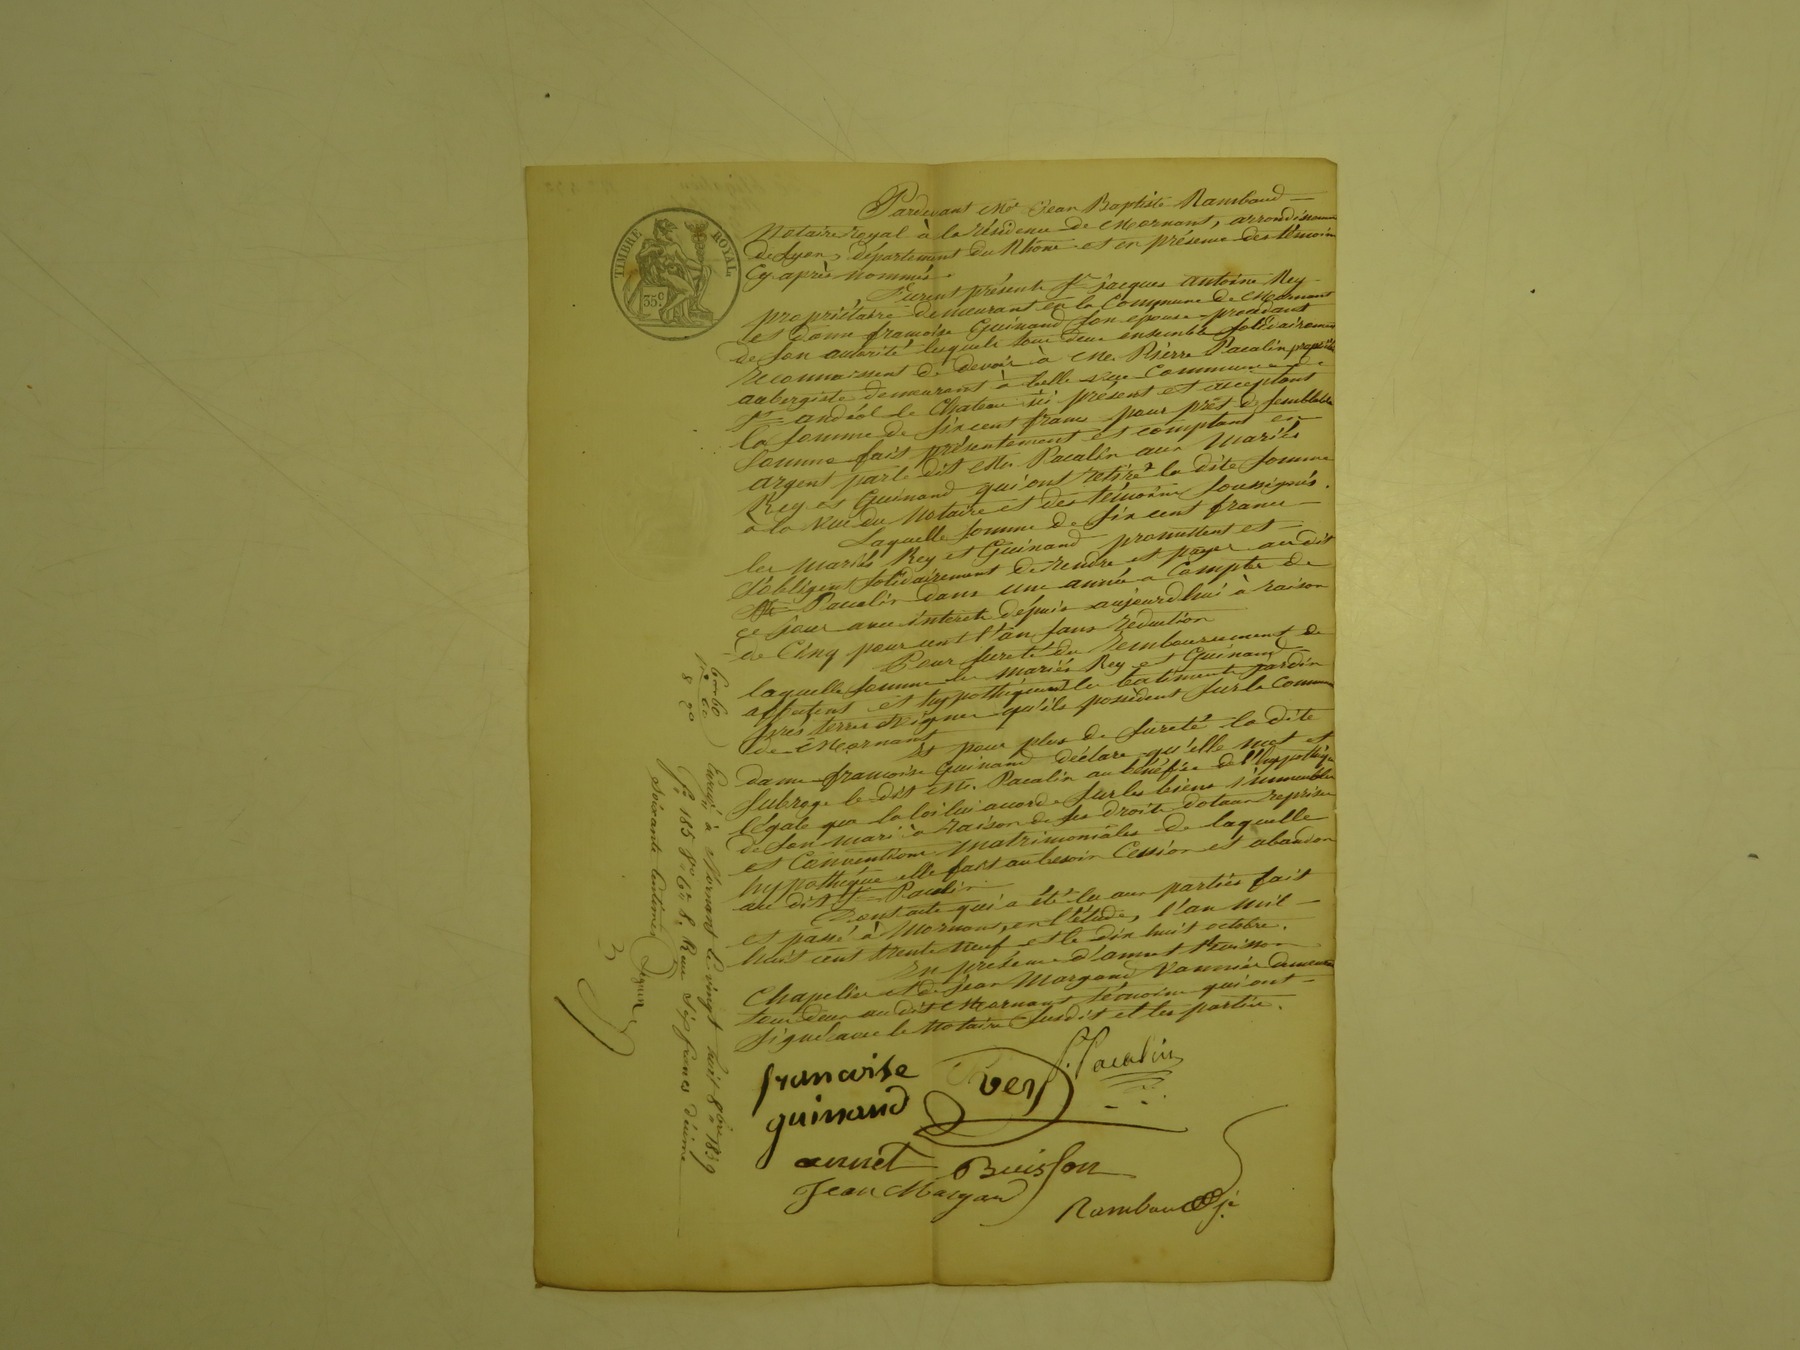 TIMBRE ROYAL
35c
Pardevant Me Jean Baptiste Rambaud
Notaire royal à la résidence de Mornant, arrondissement
de Lyon, département du Rhône et en présence des témoins
Cy-après nommés.
Furent présents Sr jacques antoine Rey
propriétaire demeurant en la Commune de Mornant
et dame francoise Guinand son epouse procédant
de son autorité lesquels tous deux ensemble solidairement
reconnaissent de devoir à Mr Pierre Pacalin
aubergiste demeurant à belle vue Commune de
St andéol le Chateau ici présent et acceptant
la somme de six cent francs pour prêt de semblable
somme fait présentement et comptant en
argent par le dit Mr Pacalin aux mariés
Rey et Guinand qui ont retiré la dite somme
à la vue du Notaire et des témoins soussignés.
Laquelle somme de six cent francs
les mariés Rey et Guinand promettent et
s'obligent solidairement de rendre et payer au dit
Sr Pacalin dans une année a Compter de
ce jour avec intérets depuis aujourd'hui à raison
de Cinq pour cent l'an sans réduction
Pour sureté du Remboursement de
laquelle somme les mariés Rey et Guinand
affectent et hypothèquent les batiments jardin
prés terres et vignes qu'ils possèdent sur la Commune
de Mornant
Et pour plus de sureté la dite
dame francoise Guinand déclare qu'elle met et
subroge le dit Mr Pacalin au bénéfice de l'hypothèque
légale que la loi lui accorde sur les biens immeubles
de son mari à raison de ses droits dotaux reprises
et Conventions matrimoniales de laquelle
hypothèque elle fait au besoin Cession et abandon
au dit Sr Pacalin
Dont acte qui a été lu aux parties fait
et passé à Mornant, en l'étude, l'an mil
huit cent trente neuf et le dix huit octobre.
En présence d'annet Buisson
Chapelier et de Jean Margand Vannier demeurant
tous deux au dit Mornant témoins qui ont
signé avec le Notaire susdit et les parties.
francoise
guinand
Rey
P. Pacalin
annet Buisson
Jean Margand
Rambaud
6 60
8
Enregé à Mornant le vingt huit 8bre 1839
fo 185 Vo Ces 8, Reçu Six francs décime
soixante centimes